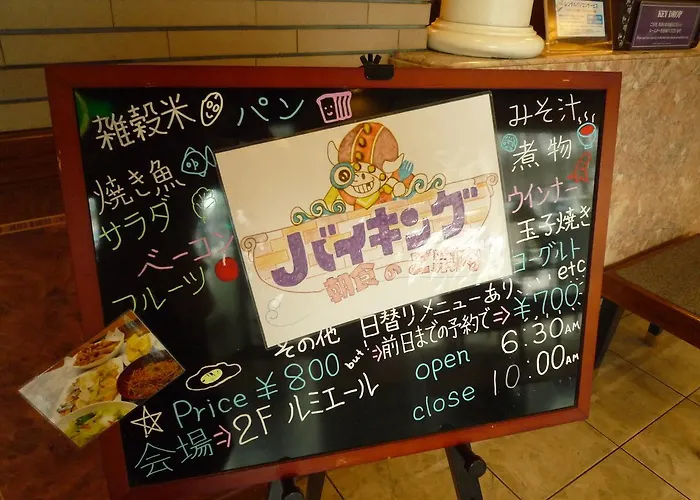 雑穀米 パン
みそ汁
焼き魚
煮物
サラダ
ウインナー
ベーコン
玉子焼き
フルーツ
ヨーグルト
etc
バイキング
朝食のご案内
その他 日替りメニューあり
Price ¥800 but! ⇒前日までの予約で⇒¥700
会場⇒2F ルミエール
open 6:30AM
close 10:00AM
KEY DROP